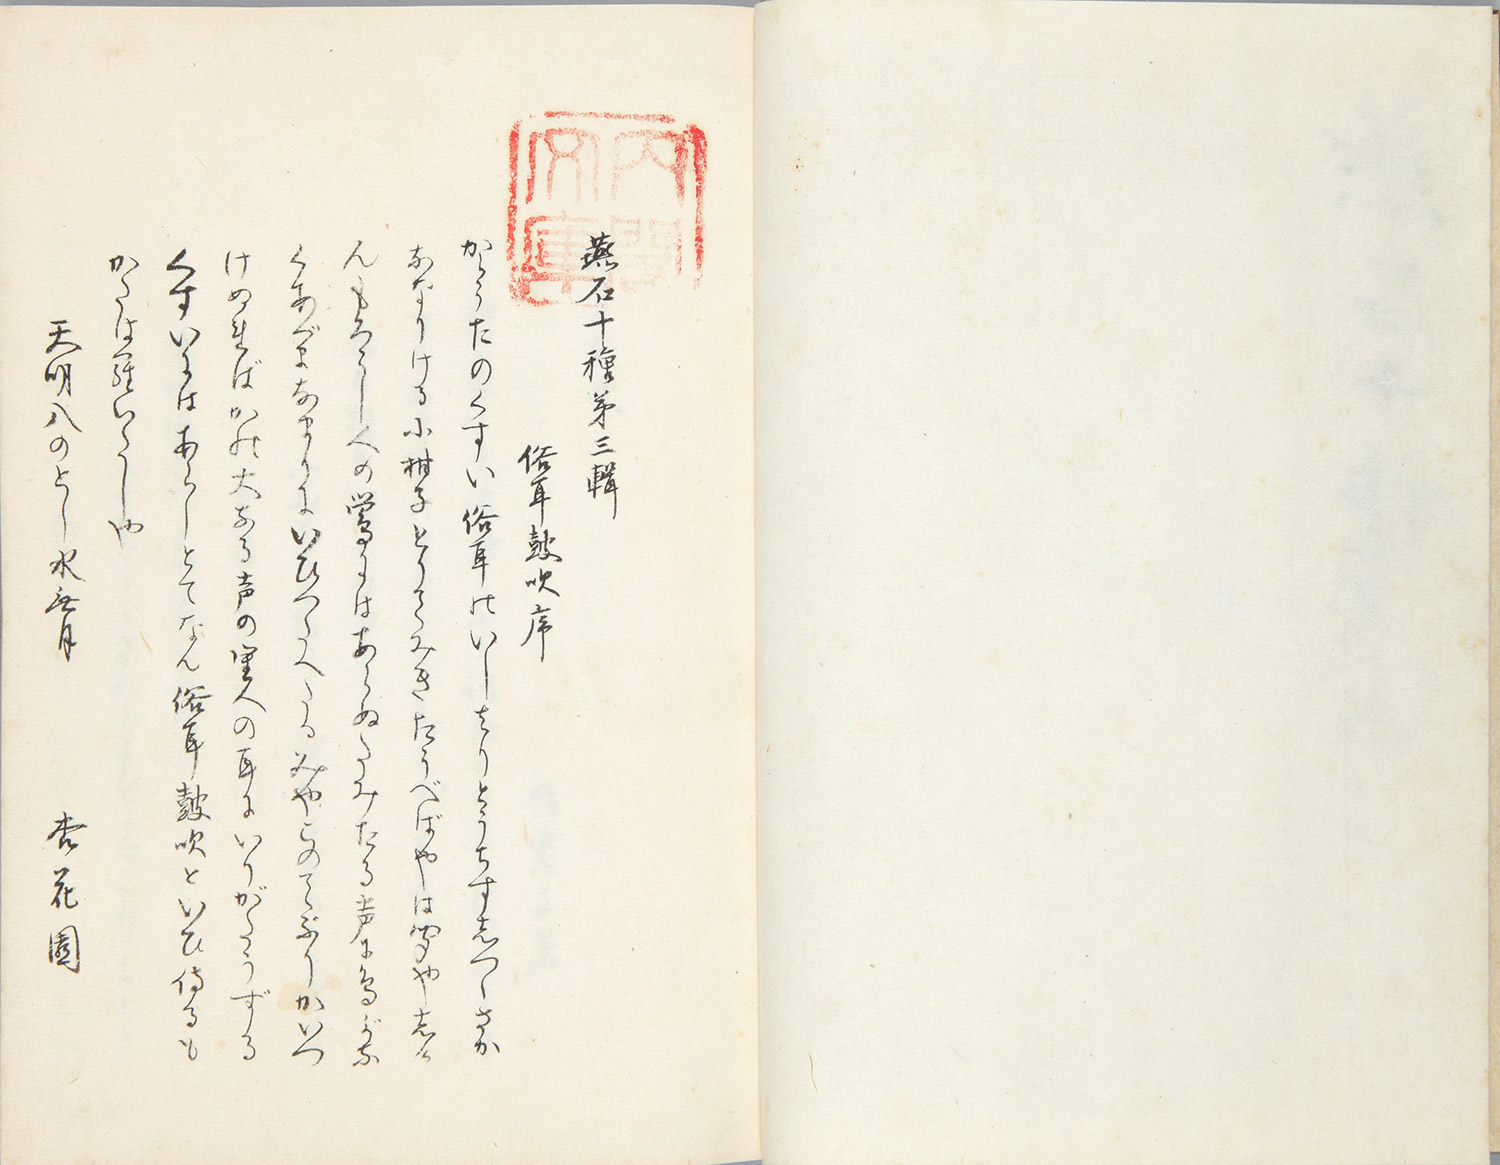 内閣文庫
燕石十種第三輯
俗耳鼓吹序
からうたのくすい俗耳のいしはりとうちずしつゝさか
なゝりける小柑子とりてみきたうべばやは聞やしる
んもろこし人の鶯にはあらぬたみたる声に鳥がな
くあづまなまりにいひつらへたるみやこのてぶりかいつ
けぬればかの大なる声の里人の耳にいりがたうずる
くすいにはあらしとてなん俗耳鼓吹といひ侍るも
かたは羅いたしや
天明八のとし水無月
杏花園